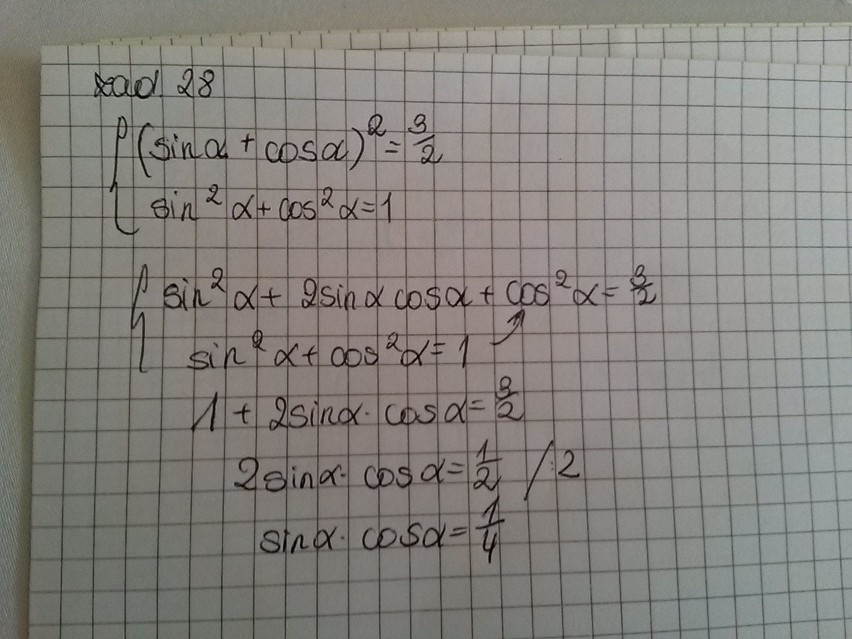 zad 28
(sinα + cosα)² = 3/2
sin²α + cos²α = 1
sin²α + 2sinα cosα + cos²α = 3/2
sin²α + cos²α = 1
1 + 2sinα · cosα = 3/2
2sinα · cosα = 1/2 / :2
sinα · cosα = 1/4